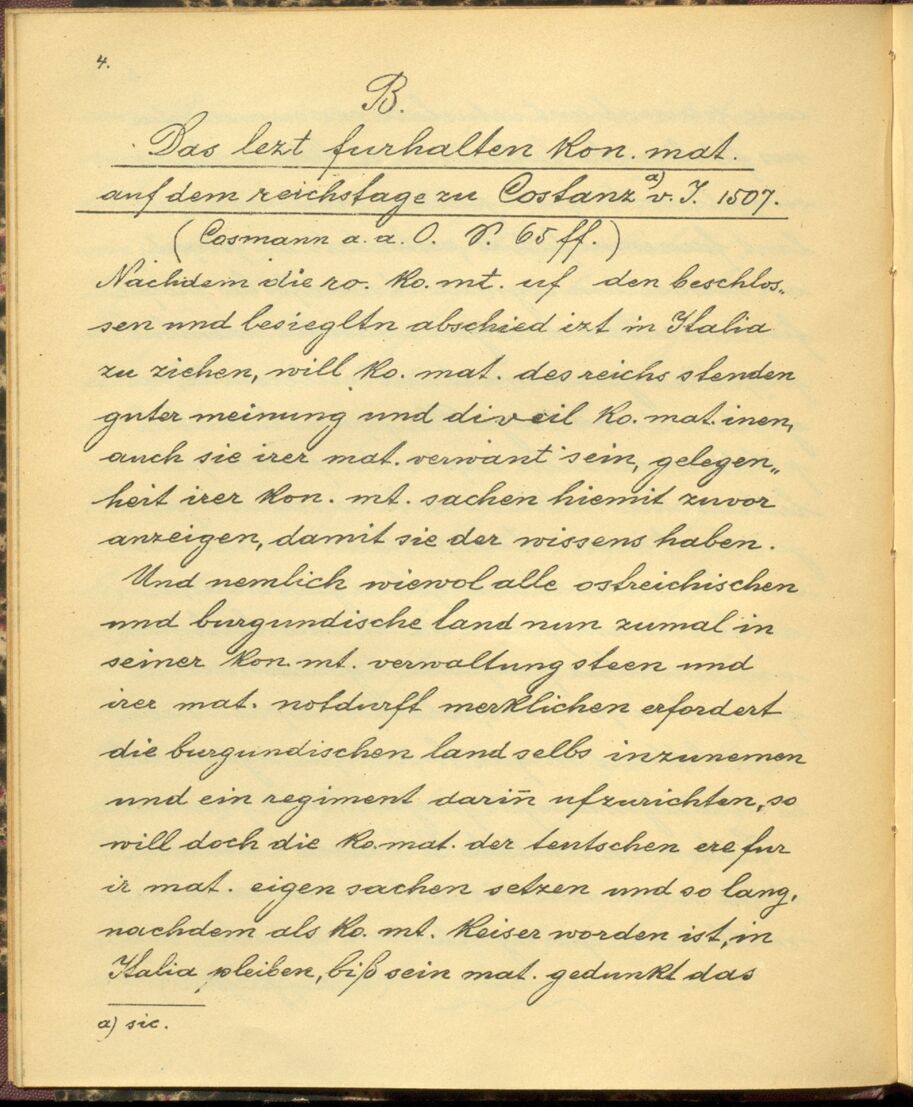 4.
B.
Das lezt furhalten kon. mat.
auf dem reichstage zu Costanz a) v. J. 1507.
(Cosmann a. a. O. S. 65 ff.)
Nachdem die ro. ko. mt. uf den beschlos„
sen und besiegltn abschied izt in Italia
zu ziehen, will ko. mat. des reichs stenden
guter meinung und diweil ko. mat. inen,
auch sie irer mat. verwant sein, gelegen„
heit irer kon. mt. sachen hiemit zuvor
anzeigen, damit sie der wissens haben.
Und nemlich wiewol alle ostreichischen
und burgundische land nun zumal in
seiner kon. mt. verwaltung steen und
irer mat. notdurft merklichen erfordert
die burgundischen land selbs inzunemen
und ein regiment darin̄ ufzurichten, so
will doch die ko. mat. der teutschen ere fur
ir mat. eigen sachen setzen und so lang,
nachdem als ko. mt. keiser worden ist, in
Italia pleiben, biß sein mat. gedunkt das
a) sic.